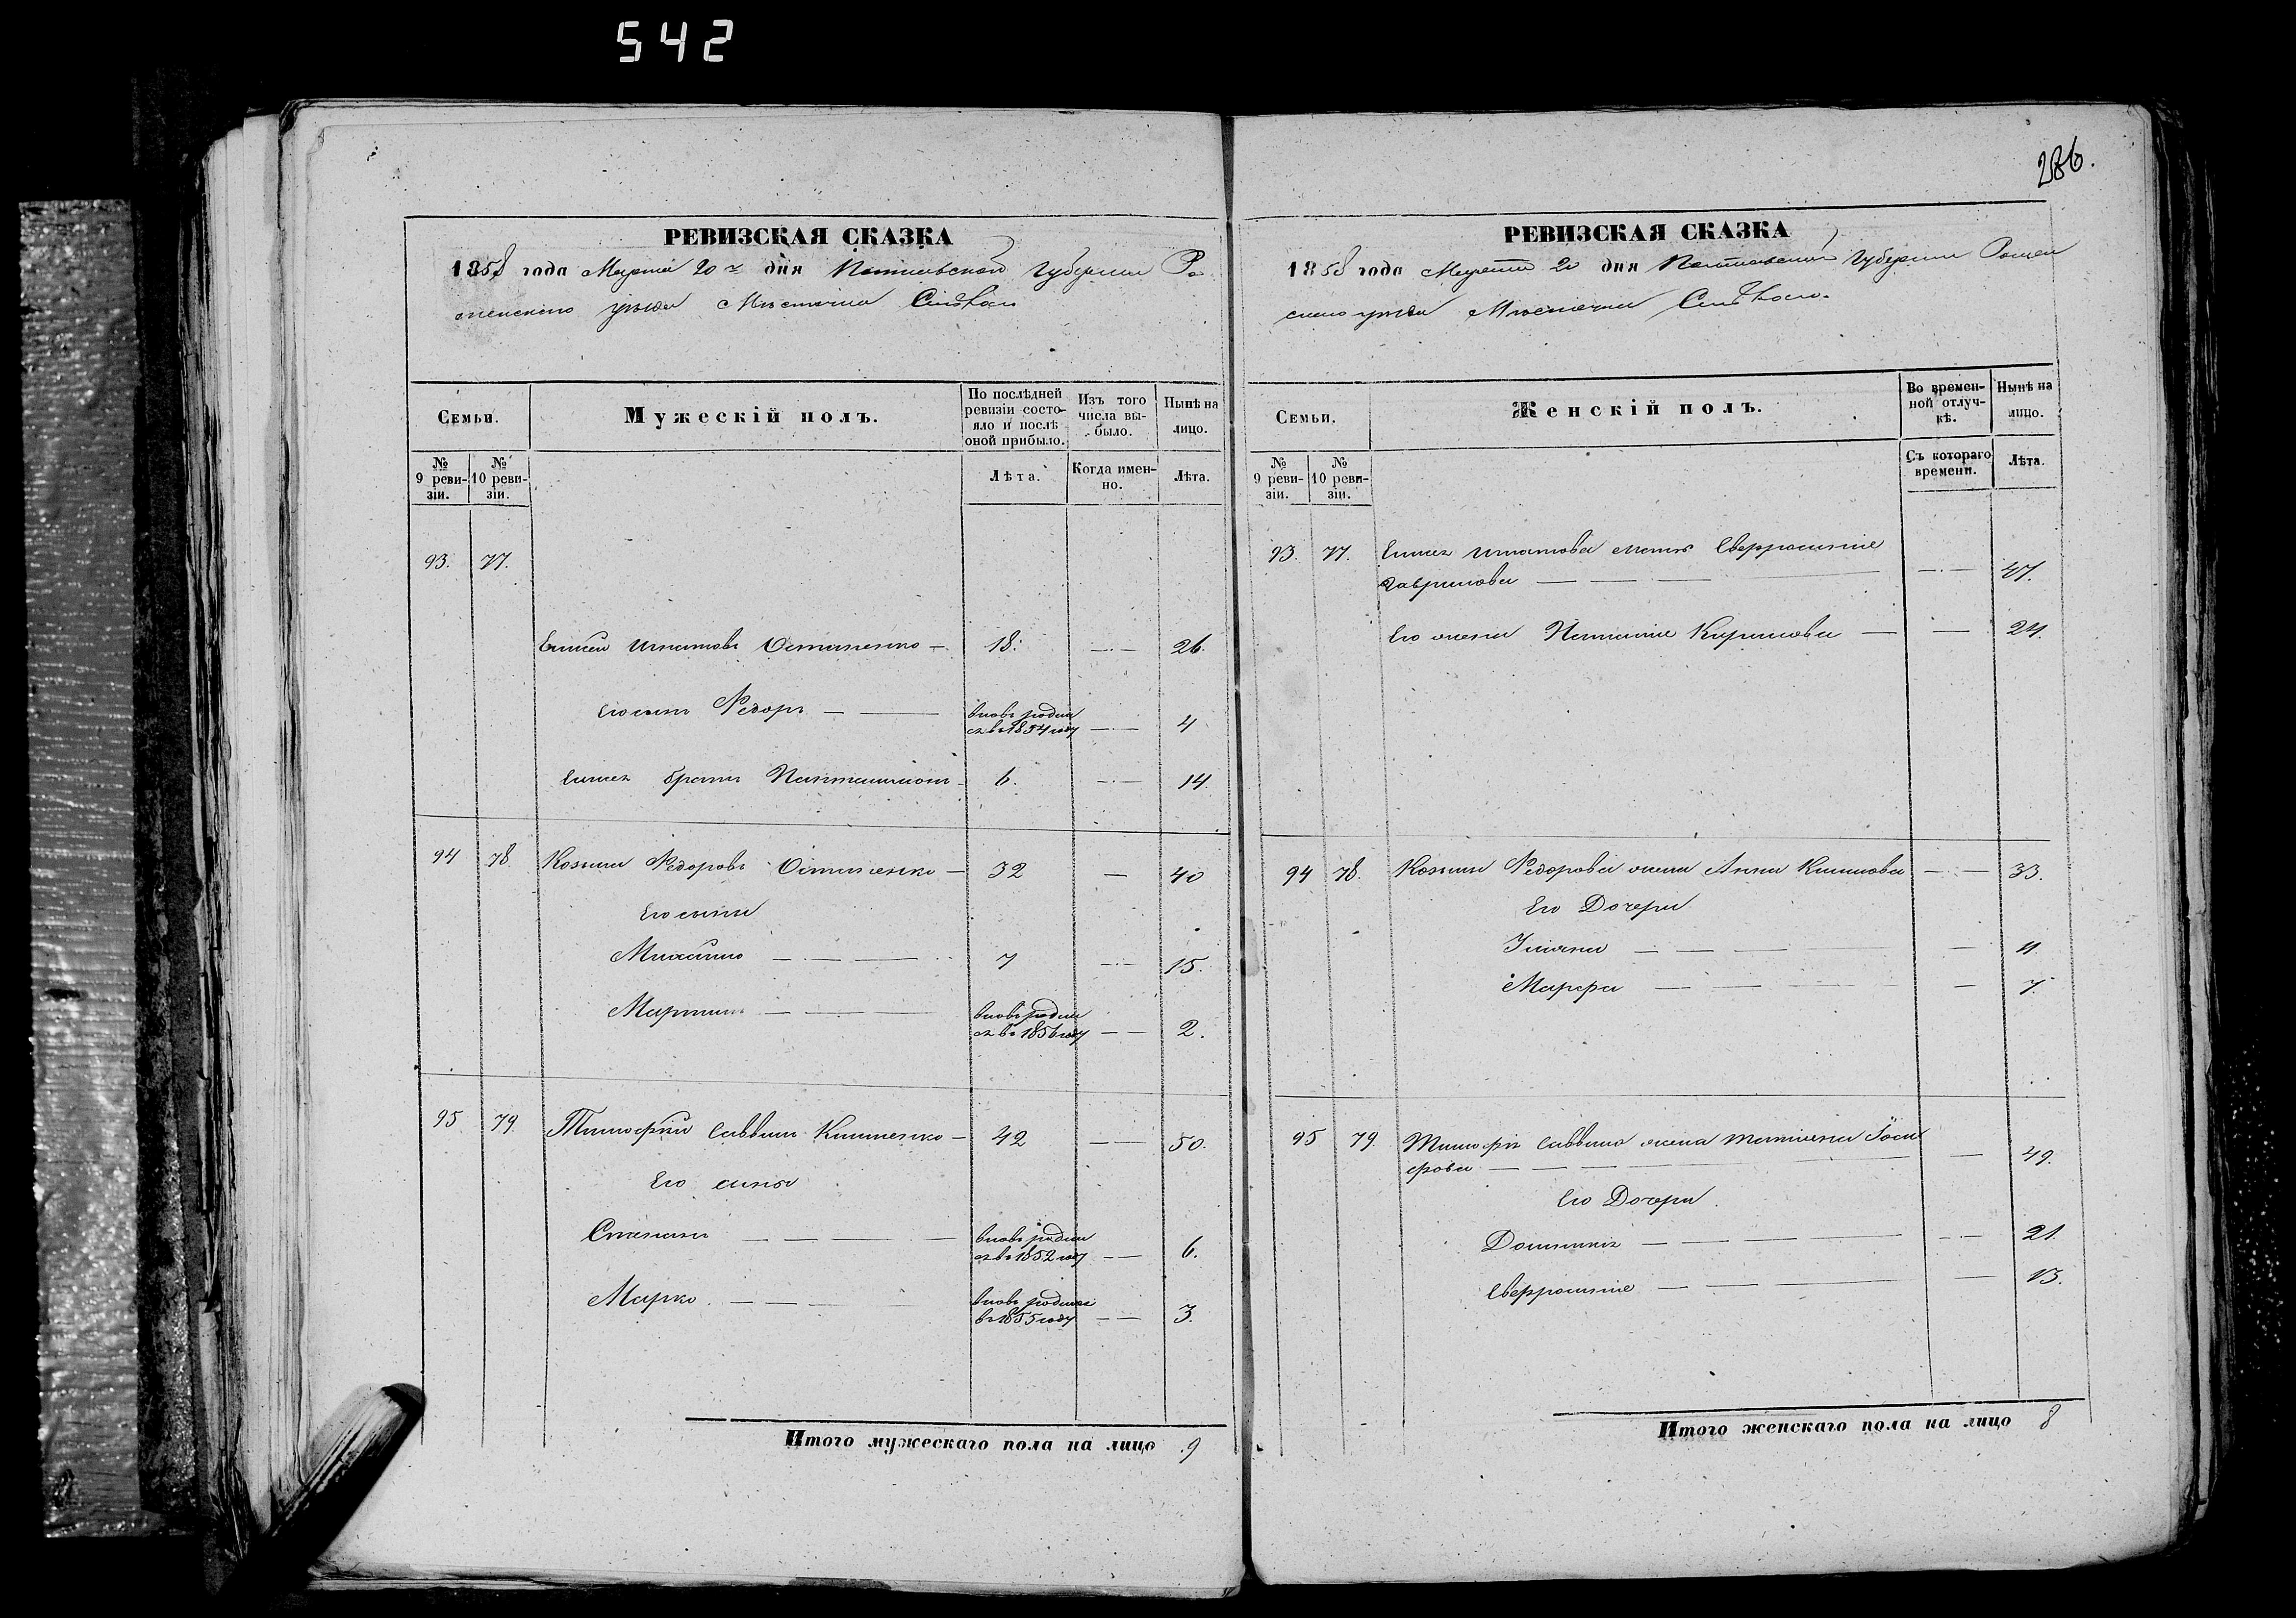 542
РЕВИЗСКАЯ СКАЗКА
1858 года Марта 20го дня Полтавской Губернии Ро
менского уѣзда Мѣстечка
Семьи.
Мужескій полъ.
По послѣдней ревизіи состояло и послѣ оной прибыло.
Изъ того числа выбыло.
Нынѣ на лицо.
№ 9 ревизіи.
№ 10 ревизіи.
Лѣта.
Когда именно.
Лѣта.
93. 77.
Елисей Игнатовъ Остапенко — 18. — 26.
Его сынъ Ѳедоръ — вновь родил
ся въ 1854 году — 4
Елисея братъ Пантелимонъ 6. — 14.
94 78 Козьма Ѳедоровъ Остапенко — 32 — 40
Его сыны
Михайло — 7 — 15.
Мартинъ — вновь родил
ся въ 1856 году — 2.
95 79. Тимофей Саввинъ — 42 — 50.
Его сыны
Степанъ — вновь родил
ся въ 1852 году — 6.
Марко. — вновь родился
въ 1855 году — 3.
Итого мужескаго пола на лицо 9
286.
РЕВИЗСКАЯ СКАЗКА
1858 года Марта 20 дня Полтавской Губерніи Ромен
ского уѣзда Мѣстечка
Семьи.
Женскій полъ.
Во временной отлучкѣ.
Нынѣ на лицо.
№ 9 ревизіи.
№ 10 ревизіи.
Съ котораго времени.
Лѣта.
93. 77. Елисея Игнатова мать Евфросинія
Гаврилова — 47.
Его жена Наталія Кирилова — 24.
94 78. Козьмы Ѳедорова жена Анна Климова — 33.
Его Дочери
Уліяна — 11.
Марфа — 7.
95 79. Тимофея Саввина жена Татіяна Іоси
фова — 49.
Его Дочери
Домникія — 21.
Евфросинія — 13.
Итого женскаго пола на лицо 8